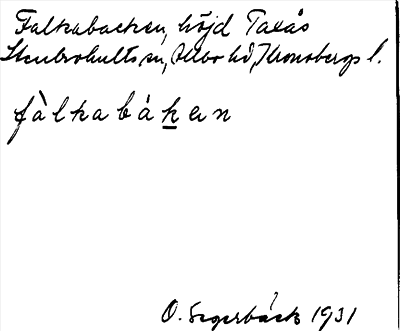 Falkabacken, höjd Taxås
Stenbrohults sn, Allbo hd, Kronobergs l.
fàlkabákan
O. Segerbäck 1931